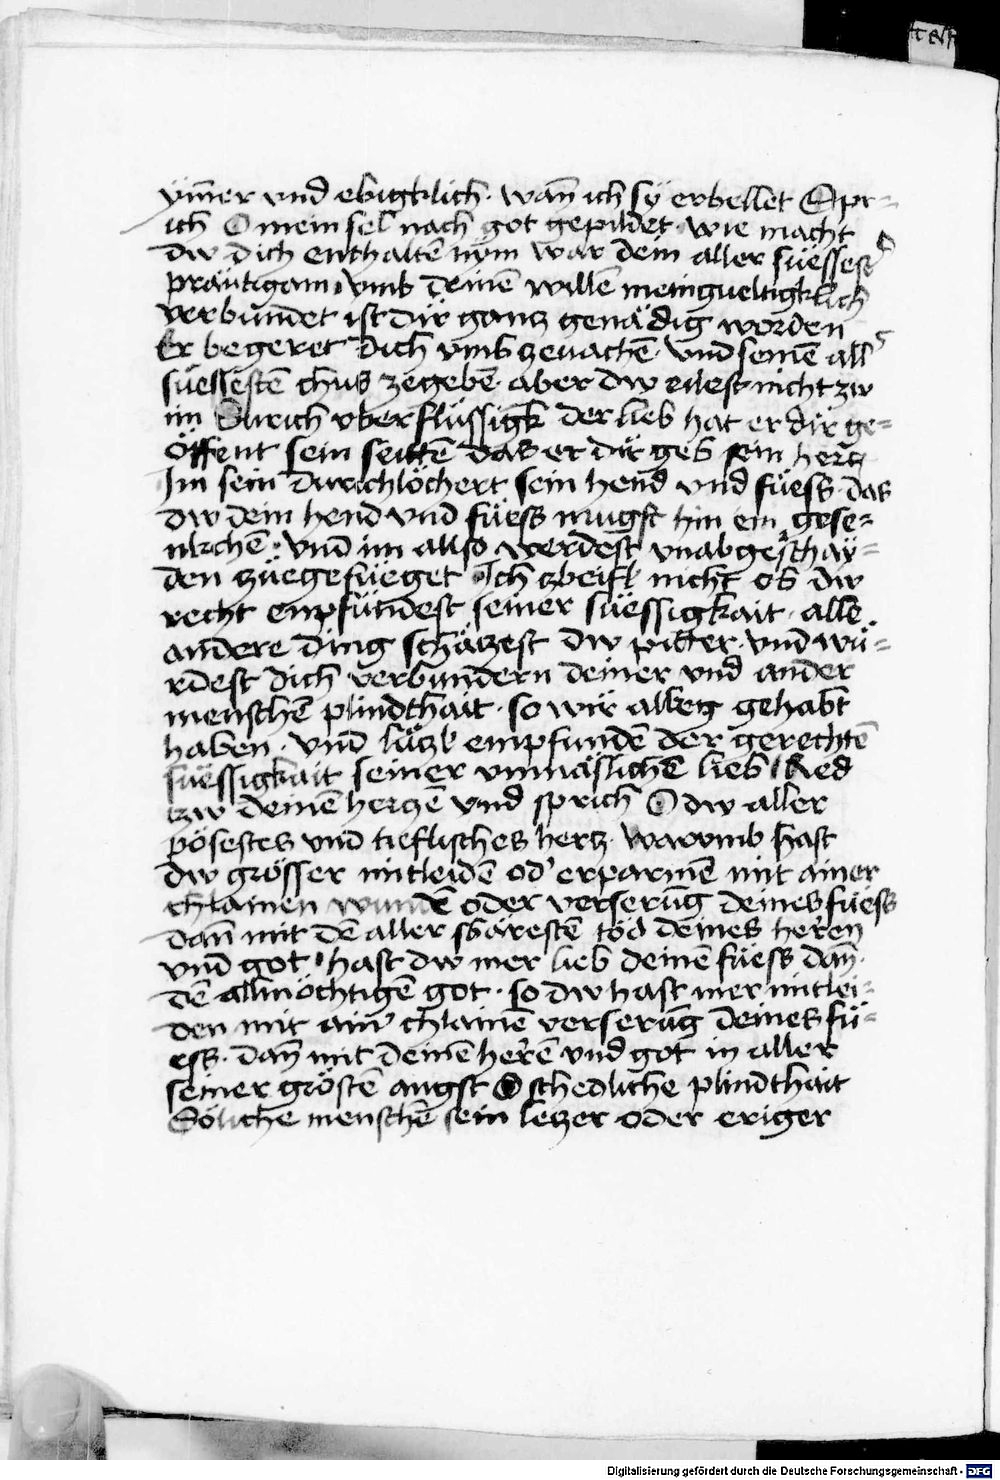 ÿm̄er vnd ebigklich · wan̄ ich sÿ erbellet Spr=
ich O mein sel nach got gepildet · wie macht
dw dich enthaltē nym war dein aller süessestⁿ
präutigam vmb deinē willē meingueltigklich
verbundet ist dir gantz genädig worden
Er begeret dich vmbzeuachē · vnd seinē all
süessestē chus zegebē · aber dw eilest nicht zw
im Durich vberflüssigk der lieb hat er dir ge=
öffent sein seittē das er dir geb sein hertz
Im sein durichlöchert sein hend vnd füess · das
dw dein hend vnd füess mugst hin ein gese=
nkchē · vnd im allso werdest vnabgeschaÿ=
den züegefüeget Ich zbeifl nicht ob dw
recht empfündest seiner süessigkait · alle
andere ding schätzest dw pitter · vnd wü=
rdest dich verbundern deiner vnd ander
menschē plindthait · so wir allbeg gehabt
haben · vnd lützl empfundē der gerechtē
süessigkait seiner vnmäslichē lieb Red
tzw deinē hertzē vnd sprich O dw aller
pösestes vnd tieflisches hertz · warumb hast
dw grösser mitleidē od' erparmē mit ainer
chlainen wundē oder verserūg deines füess
dan̄ mit dē aller sbärestē töd deines herē
vnd got · hast dw mer lieb deinē füess dan̄
dē allmöchtigē got · so dw hast mer mitlei=
den mit ain' chlainē verserūg deines fü=
ess · dan̄ mit deinē herē vnd got in aller
seiner gröstē angst O schedliche plindthait
Söliche menschē sein letzer oder eriger
Digitalisierung gefördert durch die Deutsche Forschungsgemeinschaft - DFG